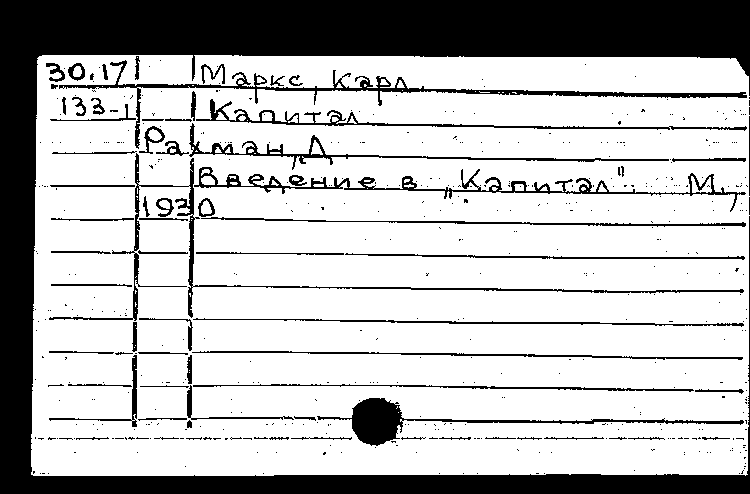 30.17 Маркс, Карл.
133-1 Капитал
Рахман, Д.
Введение в „Капитал". М.,
1930